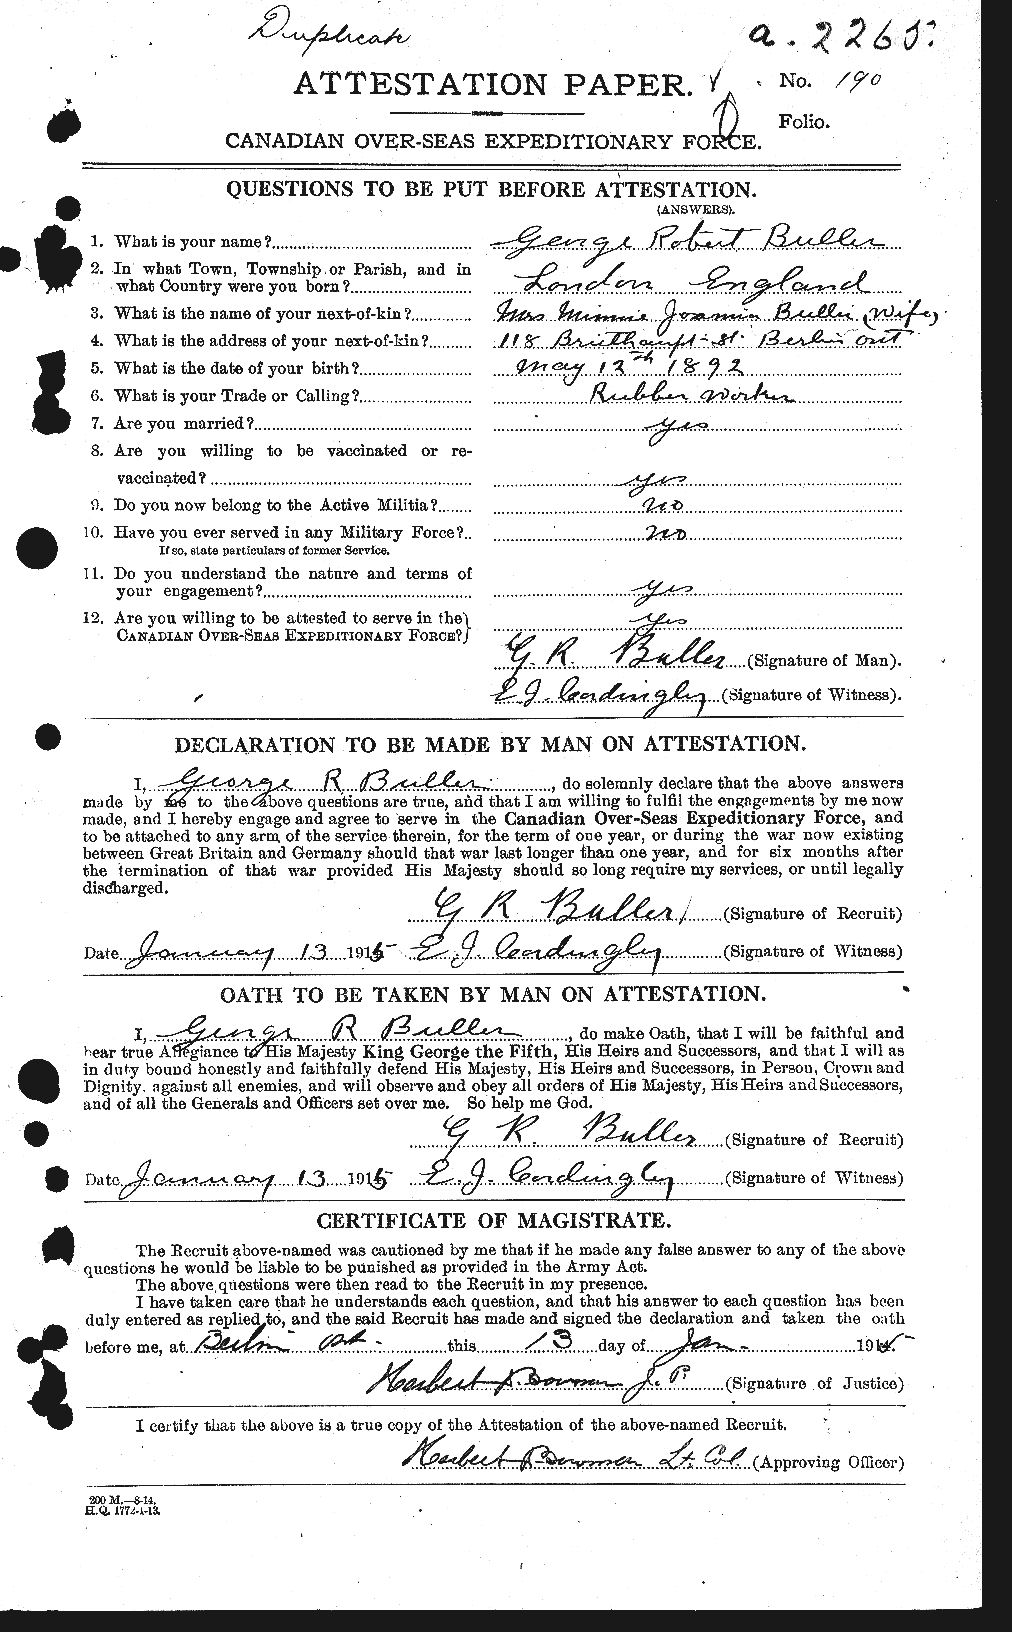 Duplicate
a. 2265
ATTESTATION PAPER.
No. 190
Folio.
CANADIAN OVER-SEAS EXPEDITIONARY FORCE.
QUESTIONS TO BE PUT BEFORE ATTESTATION.
(ANSWERS).
1. What is your name? George Robert Buller
2. In what Town, Township or Parish, and in
what Country were you born? London England
3. What is the name of your next-of-kin? Mrs Minnie Buller (Wife)
4. What is the address of your next-of-kin? 118 St. Berlin Ont
5. What is the date of your birth? May 12th 1892
6. What is your Trade or Calling? Rubber Worker
7. Are you married? yes
8. Are you willing to be vaccinated or re-
vaccinated? yes
9. Do you now belong to the Active Militia? no
10. Have you ever served in any Military Force? no
If so, state particulars of former Service.
11. Do you understand the nature and terms of
your engagement? yes
12. Are you willing to be attested to serve in the
CANADIAN OVER-SEAS EXPEDITIONARY FORCE? yes
G. R. Buller (Signature of Man).
E J. Cordingley (Signature of Witness).
DECLARATION TO BE MADE BY MAN ON ATTESTATION.
I, George R Buller, do solemnly declare that the above answers
made by me to the above questions are true, and that I am willing to fulfil the engagements by me now
made, and I hereby engage and agree to serve in the Canadian Over-Seas Expeditionary Force, and
to be attached to any arm of the service therein, for the term of one year, or during the war now existing
between Great Britain and Germany should that war last longer than one year, and for six months after
the termination of that war provided His Majesty should so long require my services, or until legally
discharged.
G R Buller (Signature of Recruit)
Date January 13 1915 E. J. Cordingley (Signature of Witness)
OATH TO BE TAKEN BY MAN ON ATTESTATION.
I, George R Buller, do make Oath, that I will be faithful and
bear true Allegiance to His Majesty King George the Fifth, His Heirs and Successors, and that I will as
in duty bound honestly and faithfully defend His Majesty, His Heirs and Successors, in Person, Crown and
Dignity, against all enemies, and will observe and obey all orders of His Majesty, His Heirs and Successors,
and of all the Generals and Officers set over me. So help me God.
G R. Buller (Signature of Recruit)
Date January 13 1915 E. J. Cordingley (Signature of Witness)
CERTIFICATE OF MAGISTRATE.
The Recruit above-named was cautioned by me that if he made any false answer to any of the above
questions he would be liable to be punished as provided in the Army Act.
The above questions were then read to the Recruit in my presence.
I have taken care that he understands each question, and that his answer to each question has been
duly entered as replied to, and the said Recruit has made and signed the declaration and taken the oath
before me, at Berlin Ont. this 13 day of Jan. 1915.
Herbert Bowman J. P. (Signature of Justice)
I certify that the above is a true copy of the Attestation of the above-named Recruit.
Herbert Bowman Lt. Col. (Approving Officer)
200 M.—8-14.
H.Q. 1772-1-13.